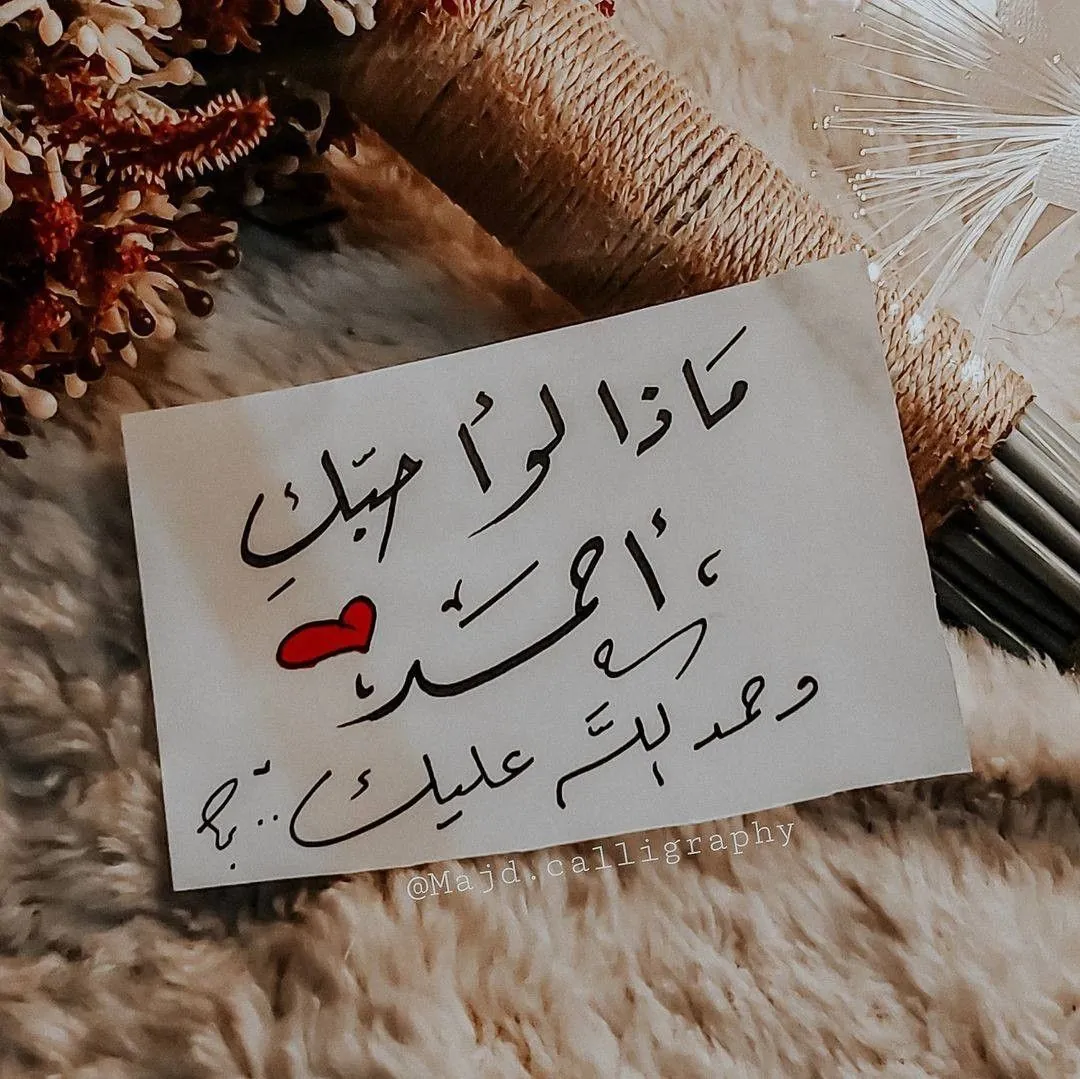 مَاذا لو أُحبّكِ
أحمَد
وحمد اللَّه عليك ..؟
@Majd.calligraphy